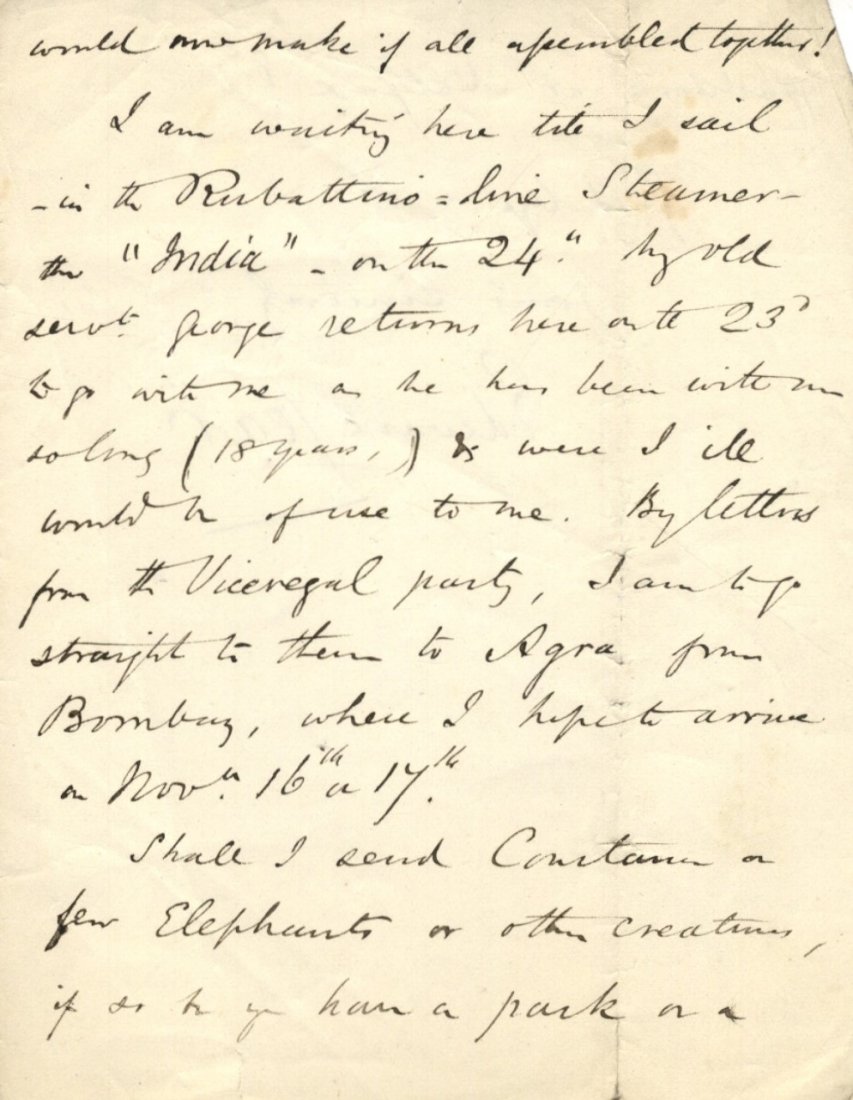 would now make if all assembled together!
I am waiting here till I sail
- in the Rubattino = line Steamer -
the "India" - on the 24th. My old
servt. George returns here on the 23d
to go with me as he has been with me
so long (18 years,) & were I ill
would be of use to me. By letters
from the Viceregal party, I am to go
straight to them to Agra from
Bombay, where I hope to arrive
on Novr. 16th or 17th.
Shall I send Constance a
few Elephants or other creatures,
if so be you have a park or a